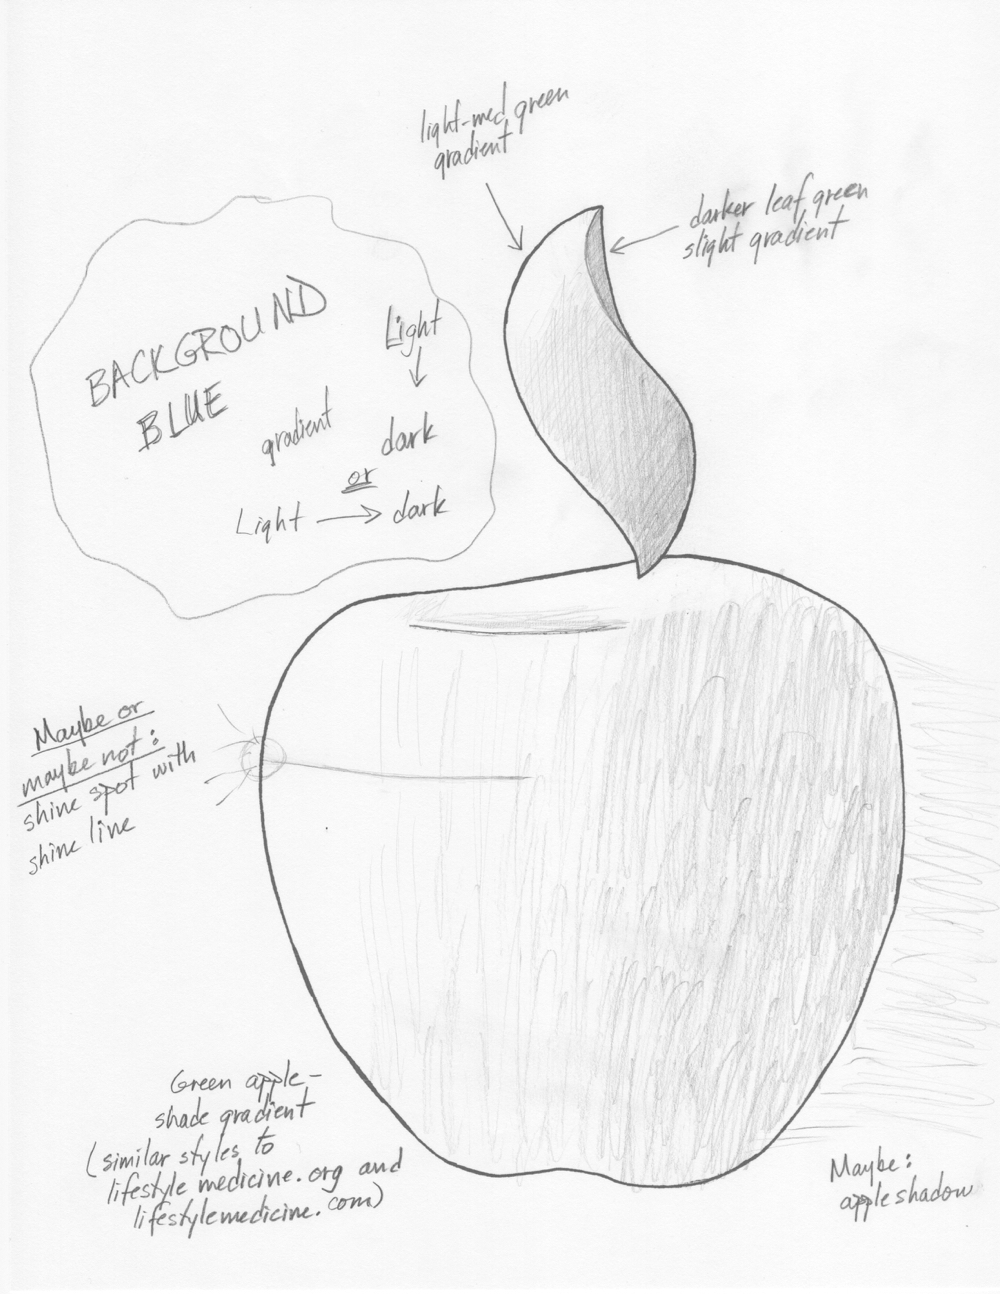 light-med green
gradient
darker leaf green
slight gradient
BACKGROUND
BLUE
gradient
Light
dark
or
Light → dark
Maybe or
maybe not:
shine spot with
shine line
Green apple-
shade gradient
(similar styles to
lifestyle medicine.org and
lifestylemedicine.com)
Maybe:
apple shadow